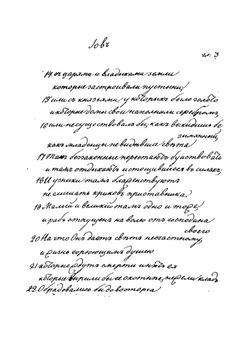 Iовъ
гл. 3
14 съ царями и владыками земли
которые застроивали пустыни
15 или съ князьями у которыхъ было золото
и которые домы свои наполняли серебромъ
16 или не существовалъ бы, какъ выкидышъ
какъ младенцы не видѣвшiе свѣта
17 Тамъ беззаконные перестаютъ буйствовать
и тамъ отдыхаютъ истощившiеся въ силахъ
18 И узники тамъ
не слышатъ криковъ приставника
19 Малый и великiй тамъ одно и тоже
и рабъ отпущенъ на волю отъ господина
своего
20 На что Онъ даетъ свѣтъ несчастному
и жизнь огорченнымъ душею
21 которые ждутъ смерти и нѣтъ ея
которые вырыли бы ее охотнѣе, нежели кладъ
22 Обрадовались бы до восторга